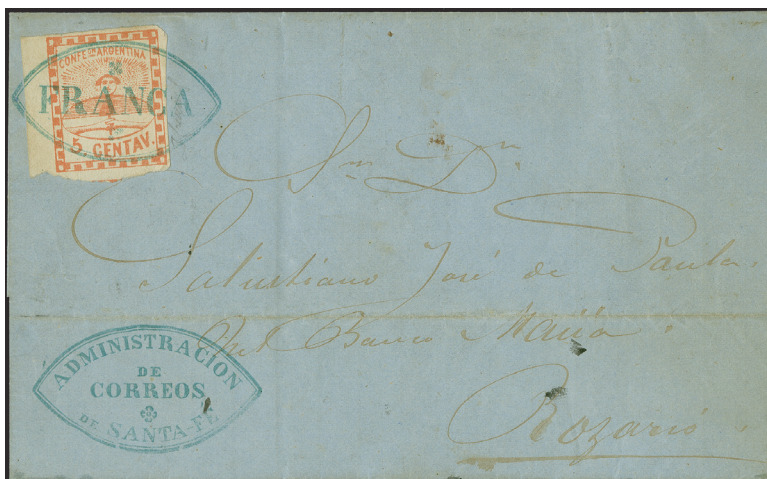 CONFEON ARGENTINA
FRANCA
5. CENTAV.
Sor Dn
Salustiano José de Paula
Banco Mauá
Rozario
ADMINISTRACION
DE
CORREOS
DE SANTA-FE